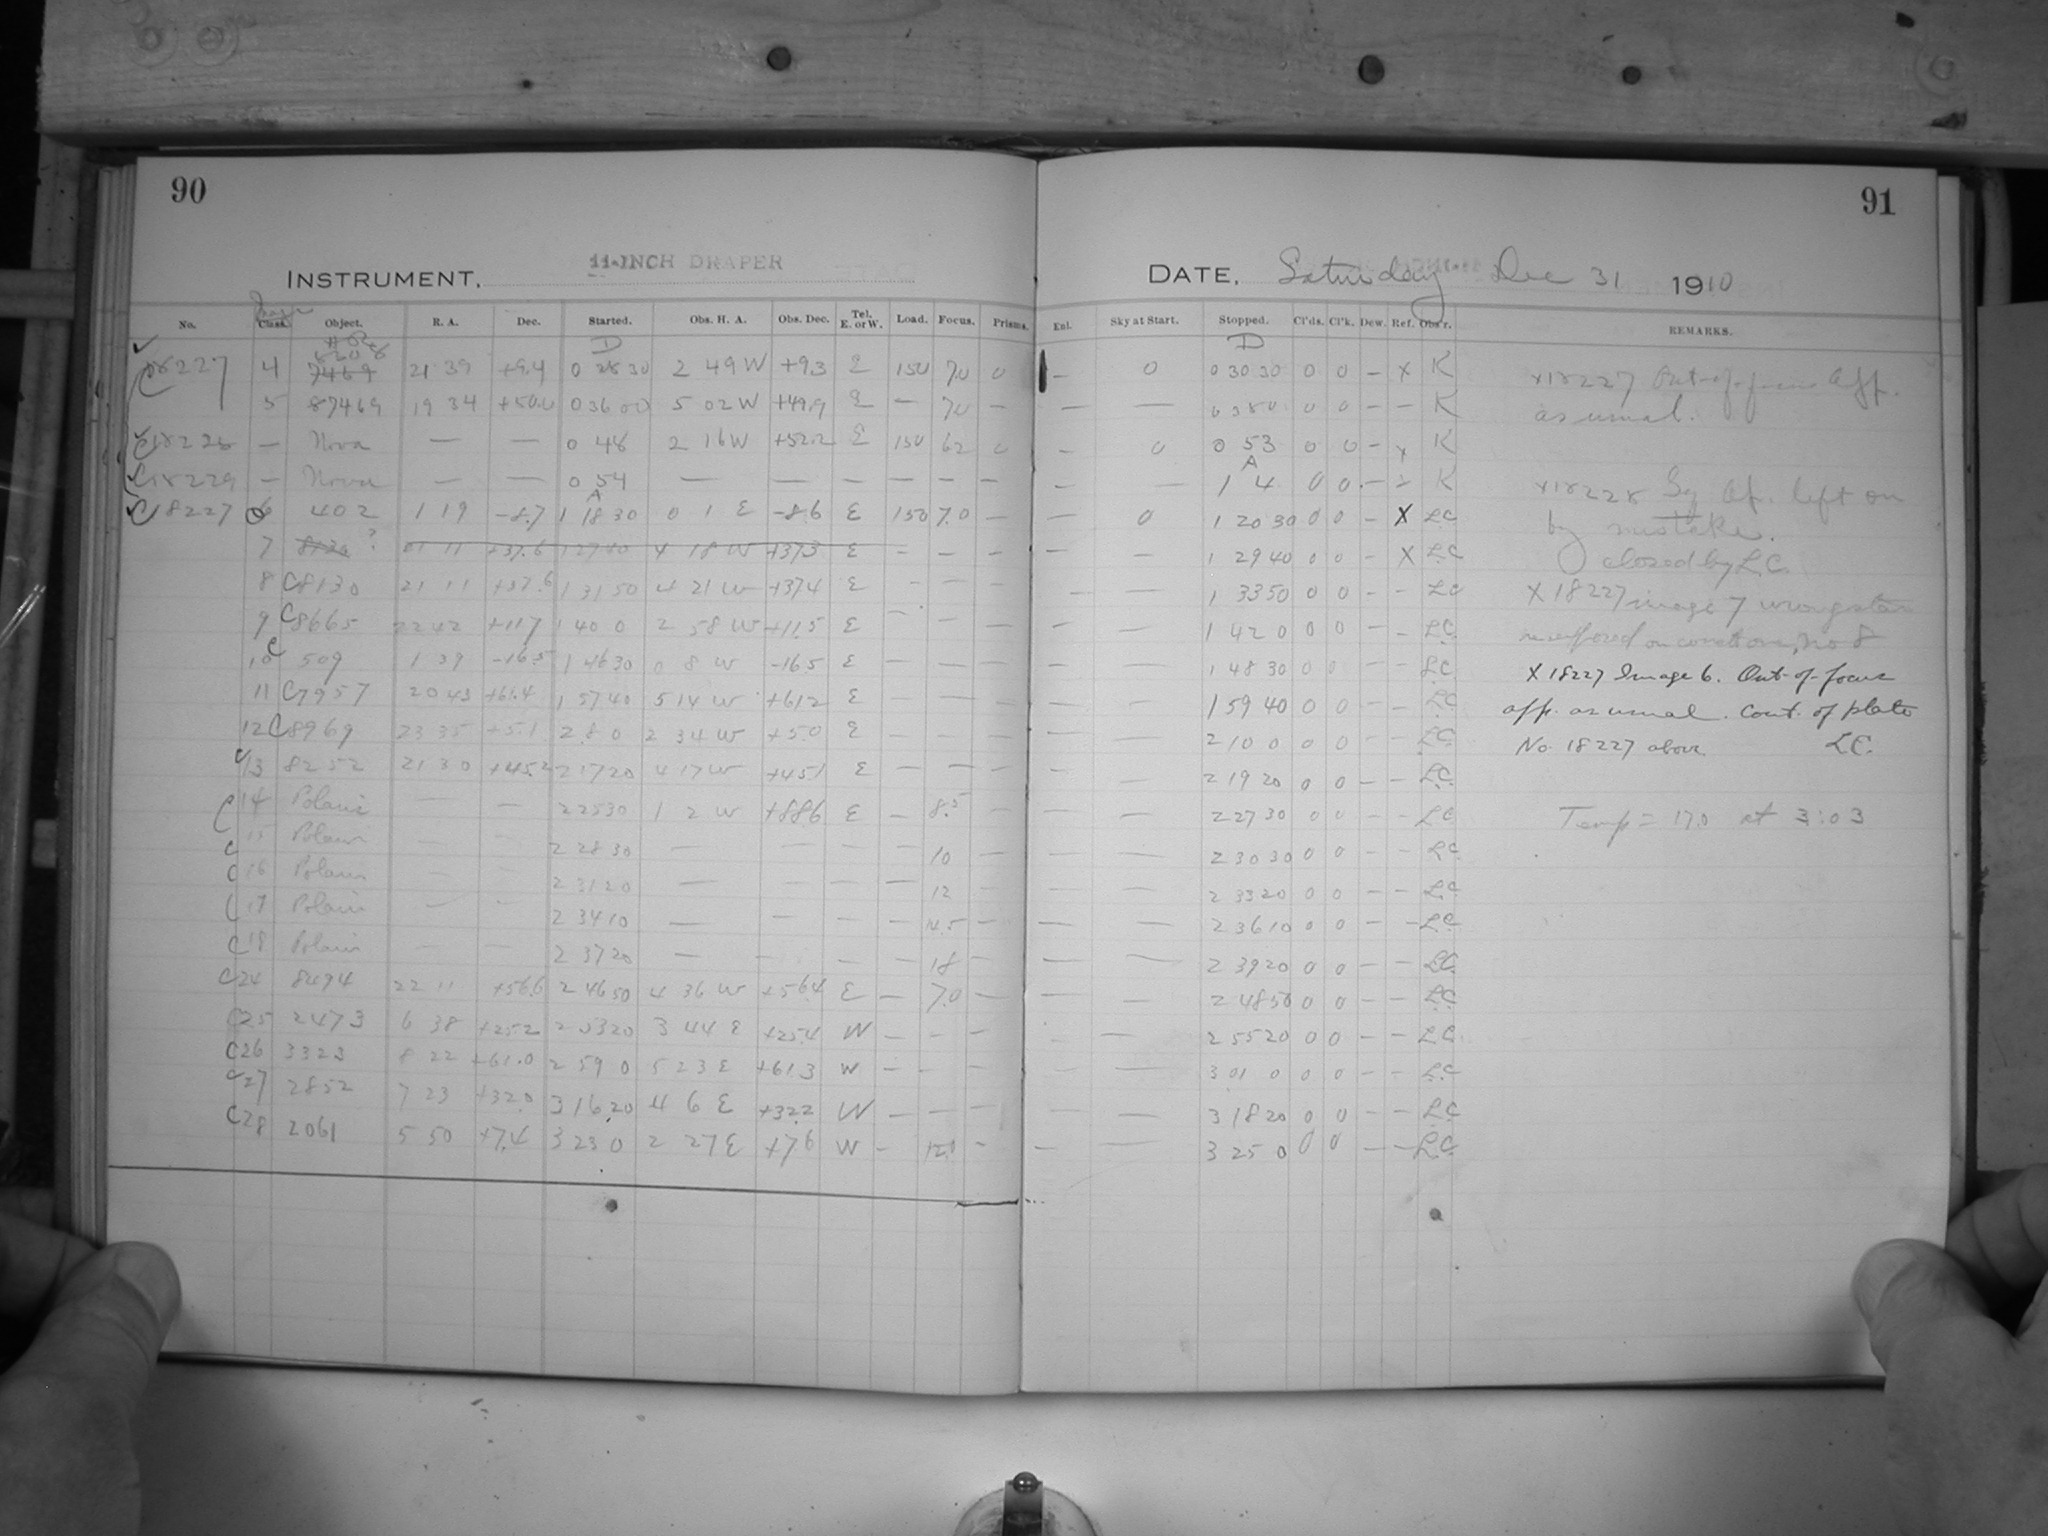 90
91
INSTRUMENT, 11-INCH DRAPER
DATE, Saturday Dec 31 1910
No. Class. Object. R. A. Dec. Started. Obs. H. A. Obs. Dec. Tel. E. or W. Load. Focus. Prisms. Enl. Sky at Start. Stopped. Cl'ds. Cl'k. Dew. Ref. Obs'r. REMARKS.
Image
D D
C18227 4 7469 21 39 +9.4 0 28 30 2 49 W +9.3 E 150 7.0 0 — 0 0 30 30 0 0 — x K
5 87469 19 34 +50.0 0 36 00 5 02 W +49.9 E — 70 — — — 0 38 0 0 0 — — K
C18228 — Nova — — 0 48 2 16 W +52.2 E 150 62 0 — 0 0 53 0 0 — x K
A
C18229 — Nova — — 0 54 — — — — — — — — 1 4 0 0 — — K
A
C18227 6 402 1 19 -8.7 1 18 30 0 1 E -8.6 E 150 7.0 — — 0 1 20 30 0 0 — X LC
7 8130 ? 21 11 +37.6 1 27 40 4 18 W +37.3 E — — — — — 1 29 40 0 0 — X LC
8 C8130 21 11 +37.6 1 31 50 4 21 W +37.4 E — — — — — 1 33 50 0 0 — — LC
9 C8665 22 42 +11.7 1 40 0 2 58 W +11.5 E — — — — — 1 42 0 0 0 — — LC
10 C 509 1 39 -16.5 1 46 30 0 8 W -16.5 E — — — — — 1 48 30 0 0 LC
11 C7957 20 43 +61.4 1 57 40 5 14 W +61.2 E — — — — — 1 59 40 0 0 — — LC
12 C8969 23 35 +5.1 2 8 0 2 34 W +5.0 E — — — — — 2 10 0 0 0 — — LC
C13 8252 21 30 +45.2 2 17 20 4 17 W +45.1 E — — — — — 2 19 20 0 0 — — LC
C14 Polaris — — 2 25 30 1 2 W +88.6 E — 8.5 — — — 2 27 30 0 0 — — LC
C15 Polaris — — 2 28 30 — — — — 10 — — — 2 30 30 0 0 — — LC
C16 Polaris — — 2 31 20 — — — — 12 — — — 2 33 20 0 0 — — LC
C17 Polaris — — 2 34 10 — — — — 14.5 — — — 2 36 10 0 0 — — LC
C18 Polaris — — 2 37 20 — — — — 18 — — — 2 39 20 0 0 — — LC
C24 8494 22 11 +56.6 2 46 50 4 36 W +56.4 E — 7.0 — — — 2 48 50 0 0 — — LC
C25 2473 6 38 +25.2 2 53 20 3 44 E +25.4 W — — — — — 2 55 20 0 0 — — LC
C26 3323 8 22 +61.0 2 59 0 5 23 E +61.3 W — — — — — 3 01 0 0 0 — — LC
C27 2852 7 23 +32.0 3 16 20 4 6 E +32.2 W — — — — — 3 18 20 0 0 — — LC
C28 2061 5 50 +7.4 3 23 0 2 27 E +7.6 W — 12.0 — — — 3 25 0 0 0 — — LC
x18227 Out-of-focus app.
as usual.
x18228 Sq. Ap. left on
by mistake.
closed by L.C.
X 18227 image 7 wrong star
re-exposed on correct one, No 8
X 18227 Image 6. Out-of-focus
app. as usual. Cont. of plate
No. 18227 above. LC.
Temp = 17.0 at 3:03